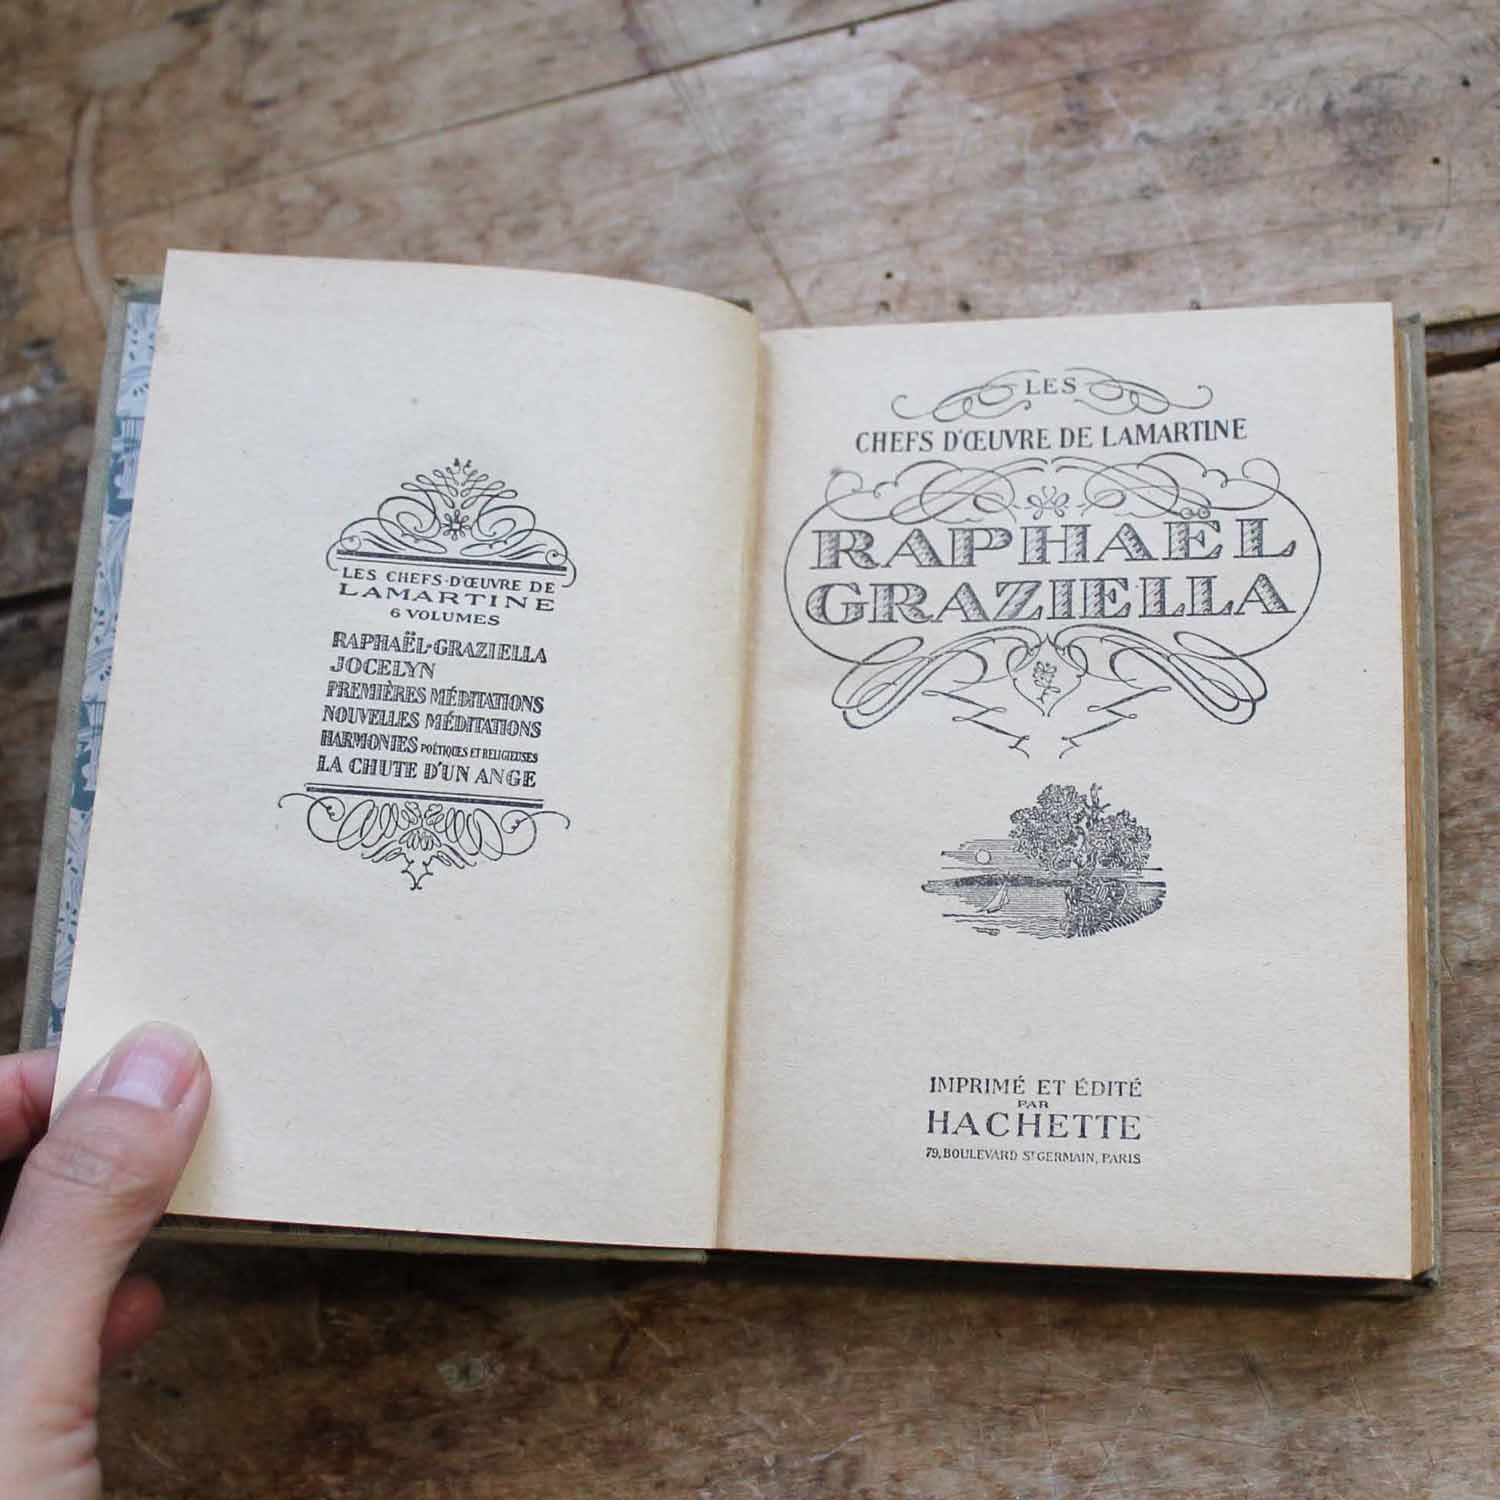 LES CHEFS-D'ŒUVRE DE
LAMARTINE
6 VOLUMES
RAPHAËL-GRAZIELLA
JOCELYN
PREMIÈRES MÉDITATIONS
NOUVELLES MÉDITATIONS
HARMONIES POÉTIQUES ET RELIGIEUSES
LA CHUTE D'UN ANGE
LES
CHEFS D'ŒUVRE DE LAMARTINE
RAPHAËL
GRAZIELLA
IMPRIMÉ ET ÉDITÉ
PAR
HACHETTE
79, BOULEVARD ST GERMAIN, PARIS